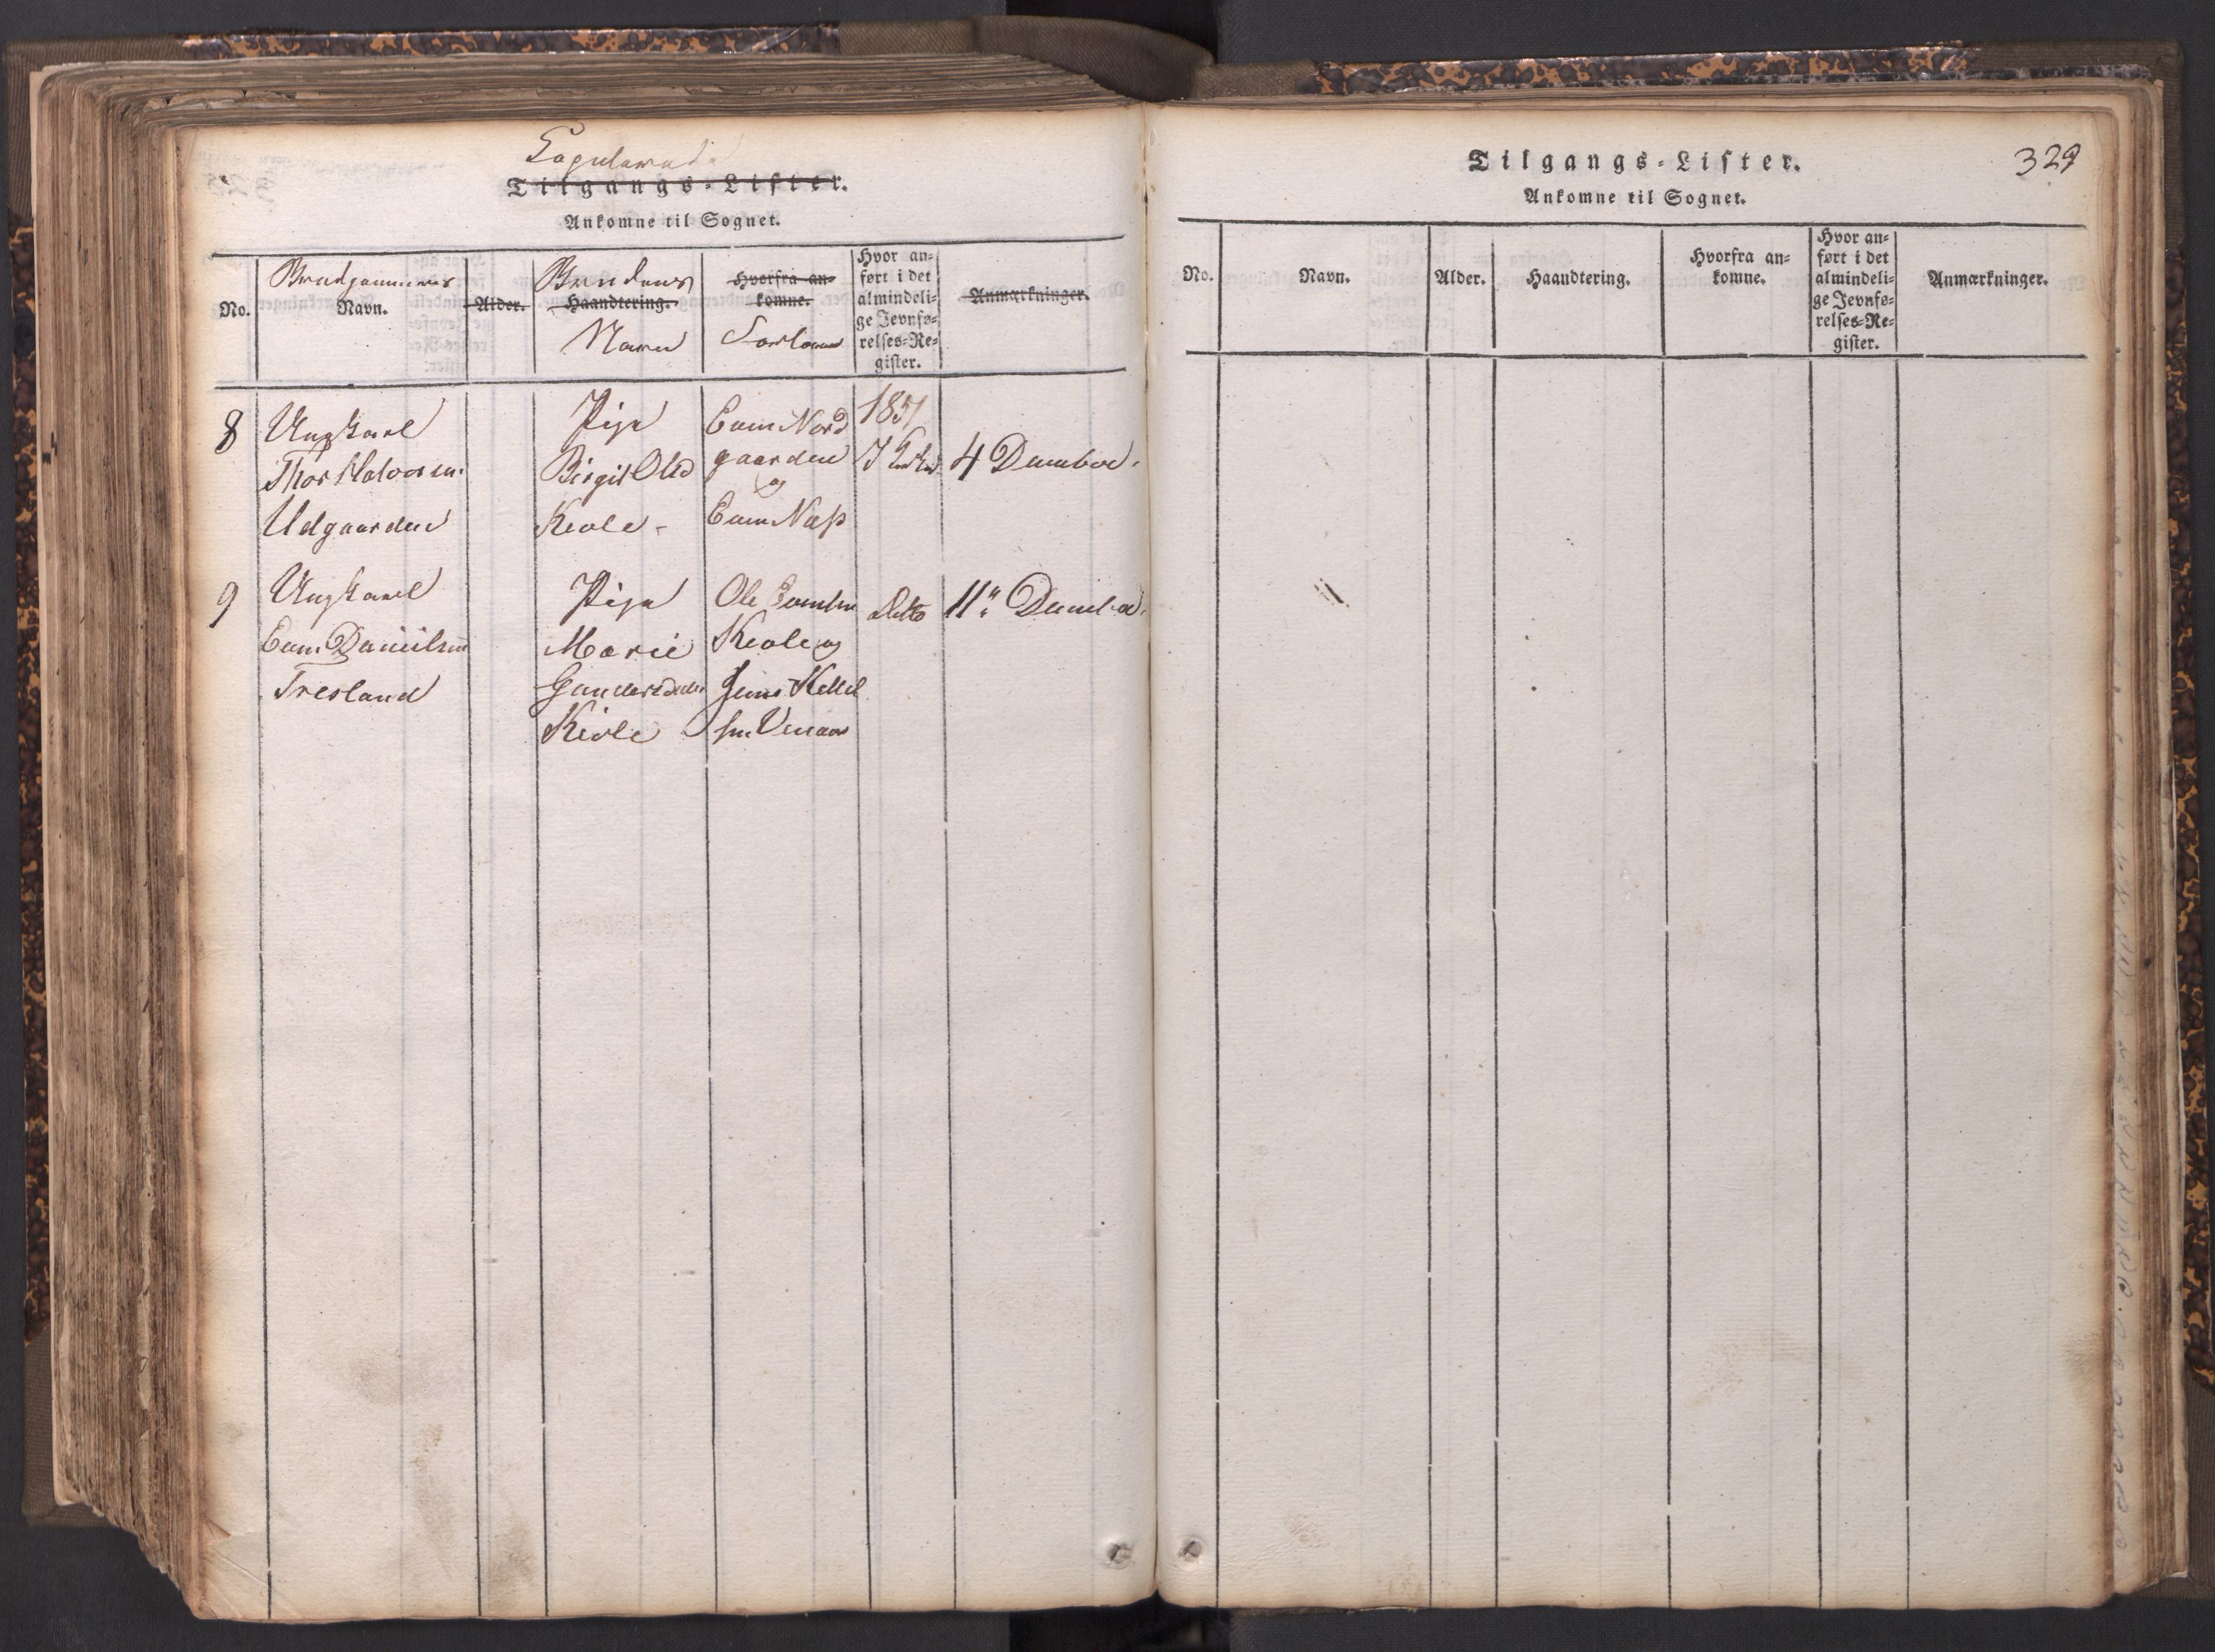 Copulerede
Tilgangs-Lister.
Ankomne til Sognet.
No.
Brudgommens
Navn.
Alder.
Brudens
Haandtering.
Navn
Hvorfra an-
komne.
Forlover
Hvor an-
ført i det
almindeli-
ge Jevnfø-
relses-Re-
gister.
Anmærkninger.
8
Ungkarl
Thor Halvorsen
Udgaarden
Pige
Birgit Olsd
Keole -
Even Nord
gaarden
og
Even Næss
1851
4 December
9
Ungkarl
Even Danielsen
Tresland
Pige
Marie
Gundersdatter
Keole
Ole Evensen
Keole og
Jens Kettil
sen Venaas
ditto
11" December
Tilgangs-Lister.
Ankomne til Sognet.
329
No.
Navn.
Alder.
Haandtering.
Hvorfra an-
komne.
Hvor an-
ført i det
almindeli-
ge Jevnfø-
relses-Re-
gister.
Anmærkninger.